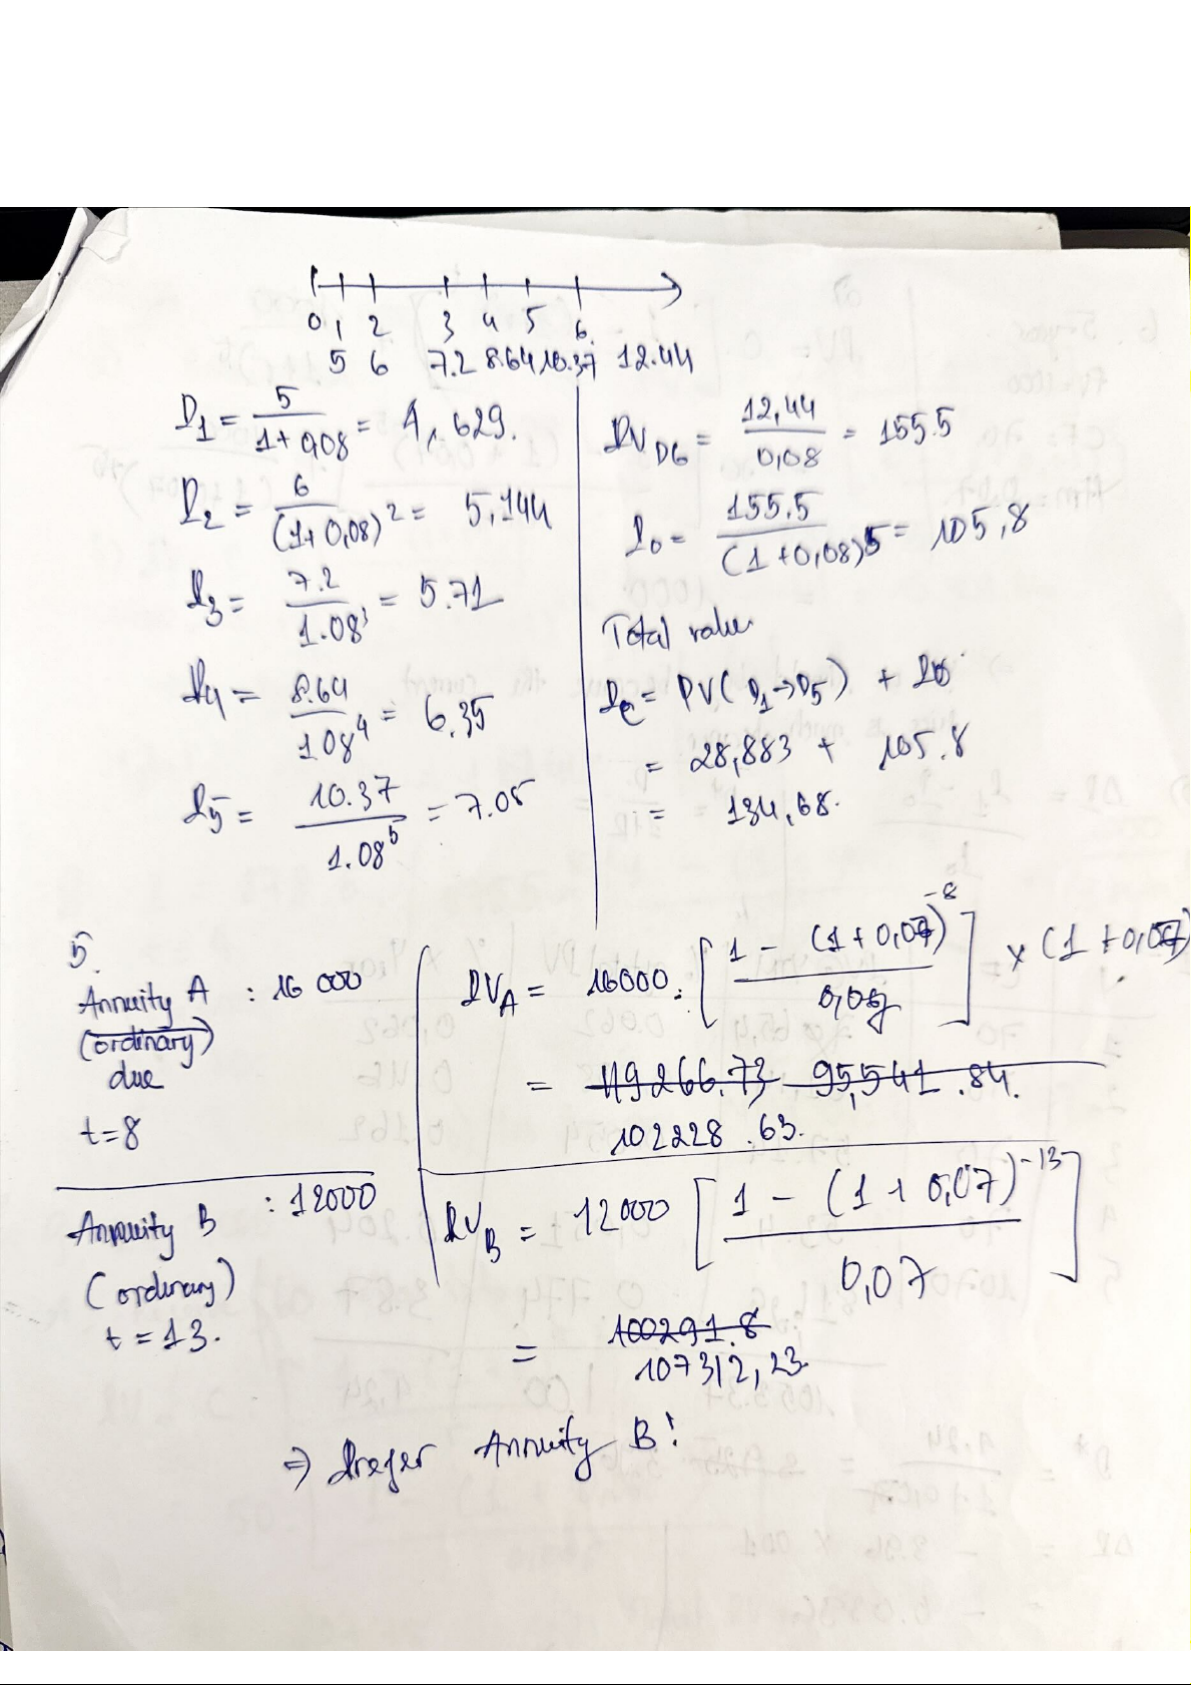 0 1 2 3 4 5 6
5 6 7.2 8.64 10.37 12.44
D1 = 5 / (1+0,08) = 4,629.
D2 = 6 / (1+0,08)^2 = 5,144
D3 = 7.2 / 1.08^3 = 5.71
D4 = 8.64 / 1.08^4 = 6.35
D5 = 10.37 / 1.08^5 = 7.05
PV D6 = 12,44 / 0,08 = 155.5
P0 = 155.5 / (1+0,08)5 = 105,8
Total value
= PV(D1→D5) +
= 28,883 + 105.8
= 134,68.
5.
Annuity A : 16 000
(ordinary)
due
t=8
PVA = 16000. [1 - (1+0,07)^-8 / 0,07] × (1+0,07)
= 119266.73 95,541.84.
102228.63.
Annuity B : 12000
(ordinary)
t=13.
PVB = 12000 [1 - (1+0,07)^-13 / 0,07]
= 100291.8
107312,23.
⇒ Prefer Annuity B!